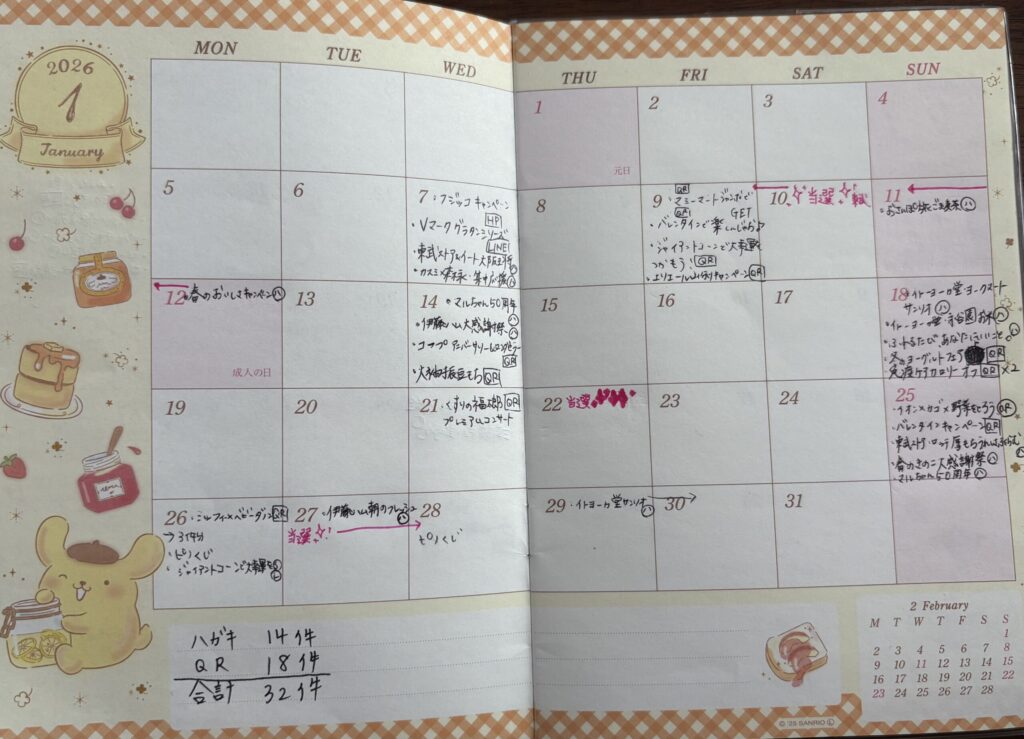 2026
1
January
MON TUE WED THU FRI SAT SUN
1
元日
2
3
4
5
6
7 フジッコ キャンペーン
HP
・Vマーク グラタンシリーズ
LINE
・東武ストア&イート大阪王将
・カスミ
8
9
QR
マミーマートジャンボで
QR GET
・バレンタインで楽しんじゃお♪
・ジャイアントコーンで大車軍
つかもう! QR
・エリエール QR
10 当選
11
・おさんぽ
12 ・春のおいしさキャンペーン ハ
成人の日
13
14 ・マルちゃん50周年
ハ
・伊藤ハム大感謝祭 ハ
・コープ アニバーサリー
QR
・大袖振豆もち QR
15
16
17
18 ・イトーヨーカ堂ヨークマート
サンリオ ハ
・イトーヨーカ堂・守谷園 お米 ハ
・ふれるたび、あなたにいいこと。
・冬のヨーグルトフェア QR
免疫ケアカロリーオフ QR ×2
19
20
21 ・くすりの福太郎 QR
プレミアムコンサート
22 当選
23
24
25
・イオン×カゴメ野菜をとろう QR
・バレンタインキャンペーン QR
・東武ストア・ロッテ
・春のきのこ大感謝祭 ハ
・マルちゃん50周年 ハ
26 ・ミルフィー×ベビーダノン QR
→3件分
・ピノくじ
・ジャイアントコーンで大車軍
27 ・伊藤ハム朝のフレッシュ
ハ
当選
28
ピノくじ
29 ・イトーヨーカ堂サンリオ
ハ
30
31
ハガキ 14件
QR 18件
合計 32件
2 February
M T W T F S S
1
2 3 4 5 6 7 8
9 10 11 12 13 14 15
16 17 18 19 20 21 22
23 24 25 26 27 28
© '25 SANRIO Ⓛ